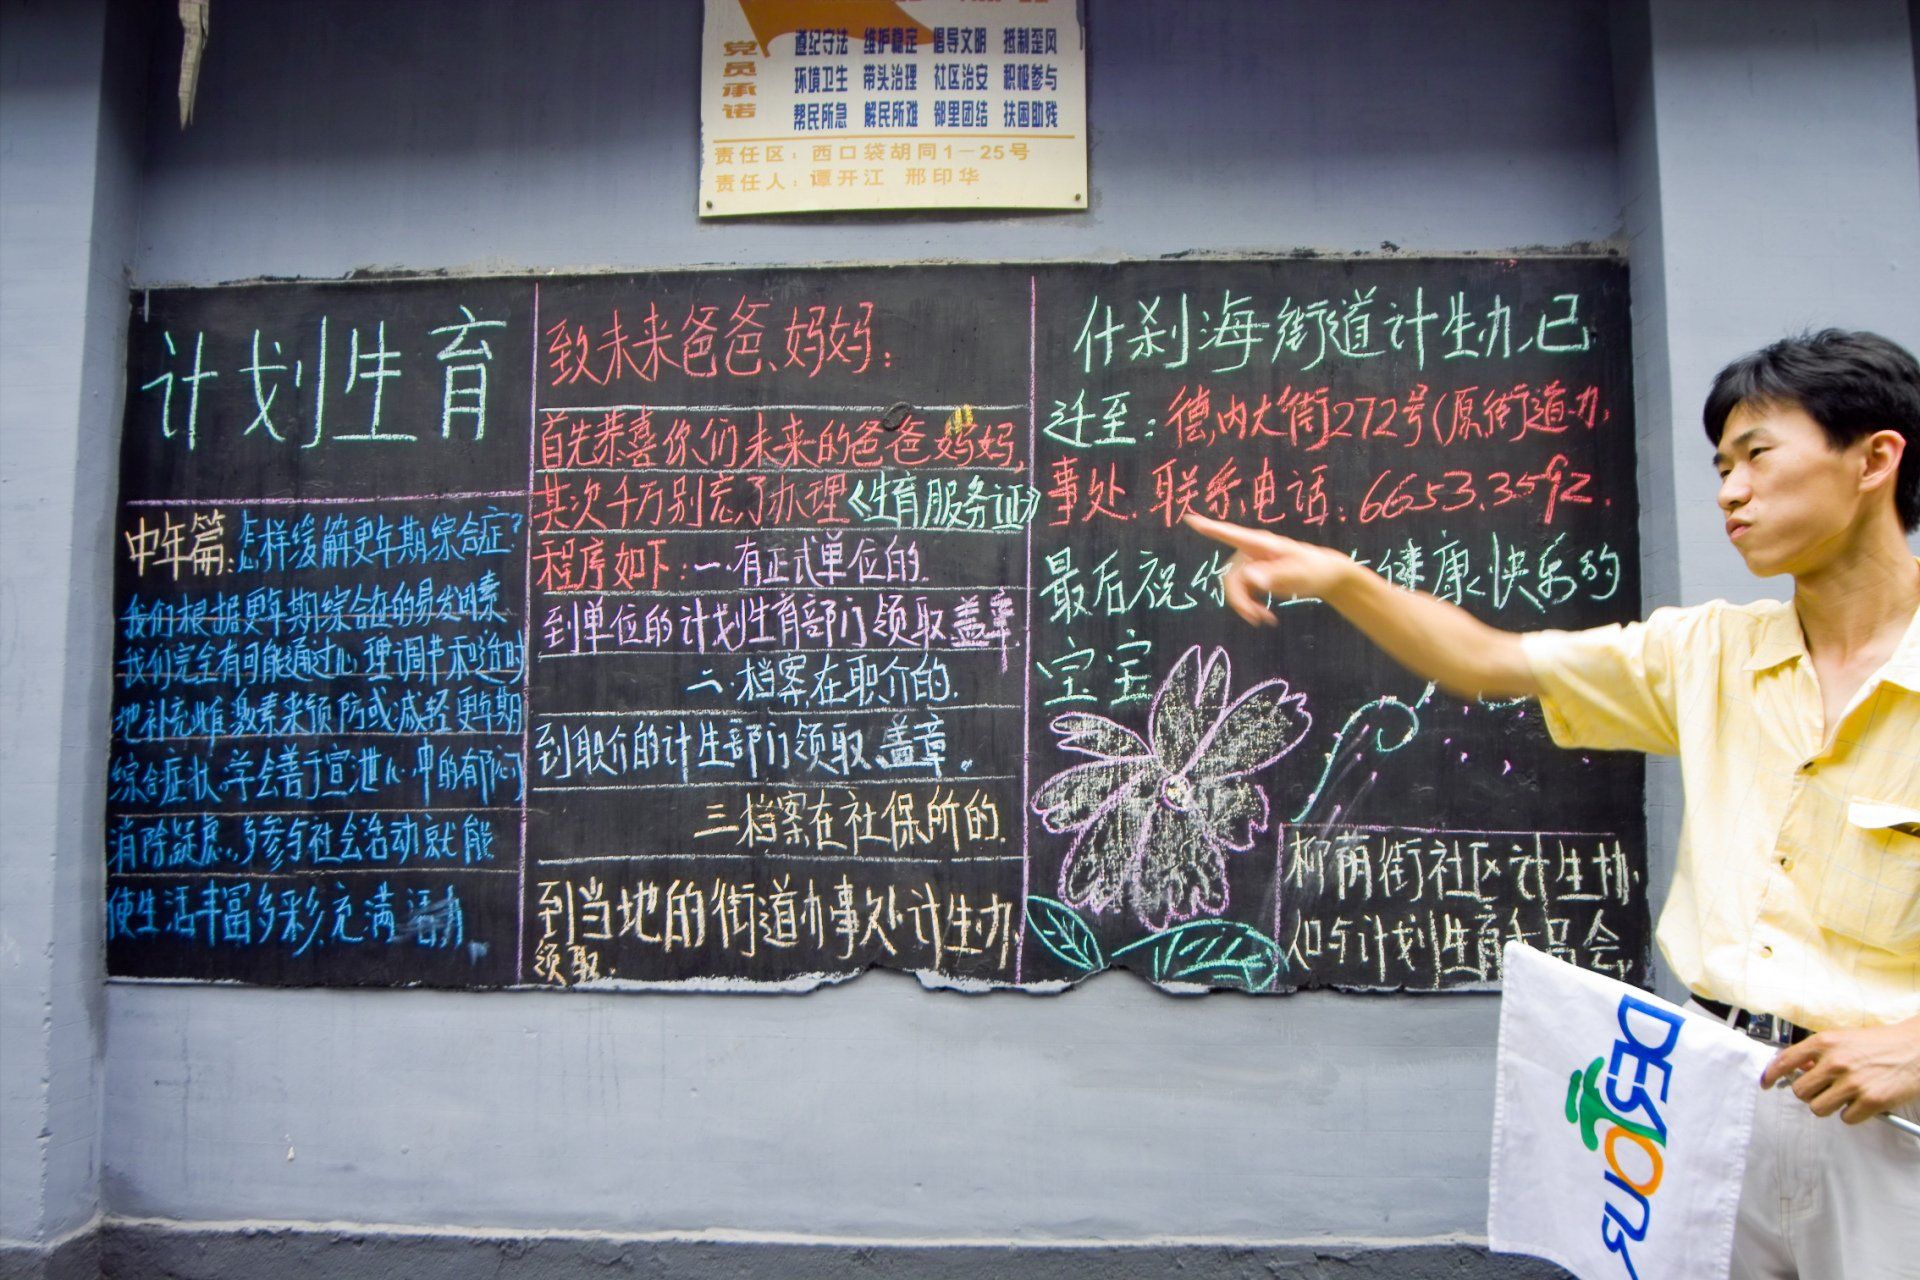 党员承诺
遵纪守法 维护稳定 倡导文明 抵制歪风
环境卫生 带头治理 社区治安 积极参与
帮民所急 解民所难 邻里团结 扶困助残
责任区：西口袋胡同1－25号
责任人：谭开江 邢印华
计划生育
中年篇：怎样缓解更年期综合症？
我们根据更年期综合症的易发因素
我们完全有可能通过心理调节和适时
地补充雌激素来预防或减轻更年期
综合症状，学会善于宣泄心中的郁闷
消除疑虑，多参与社会活动就能
使生活丰富多彩，充满活力
致未来爸爸、妈妈：
首先恭喜你们未来的爸爸妈妈，
其次千万别忘了办理《生育服务证》
程序如下：一、有正式单位的，
到单位的计划生育部门领取盖章
二、档案在职介的，
到职介的计生部门领取，盖章。
三、档案在社保所的，
到当地的街道办事处计生办，
领取。
什刹海街道计生办，已
迁至：德内大街272号（原街道办
事处，联系电话：6653.3592.
最后祝你 健康、快乐的
宝宝
柳荫街社区计生协
人口与计划生育 员会
DESIGNS